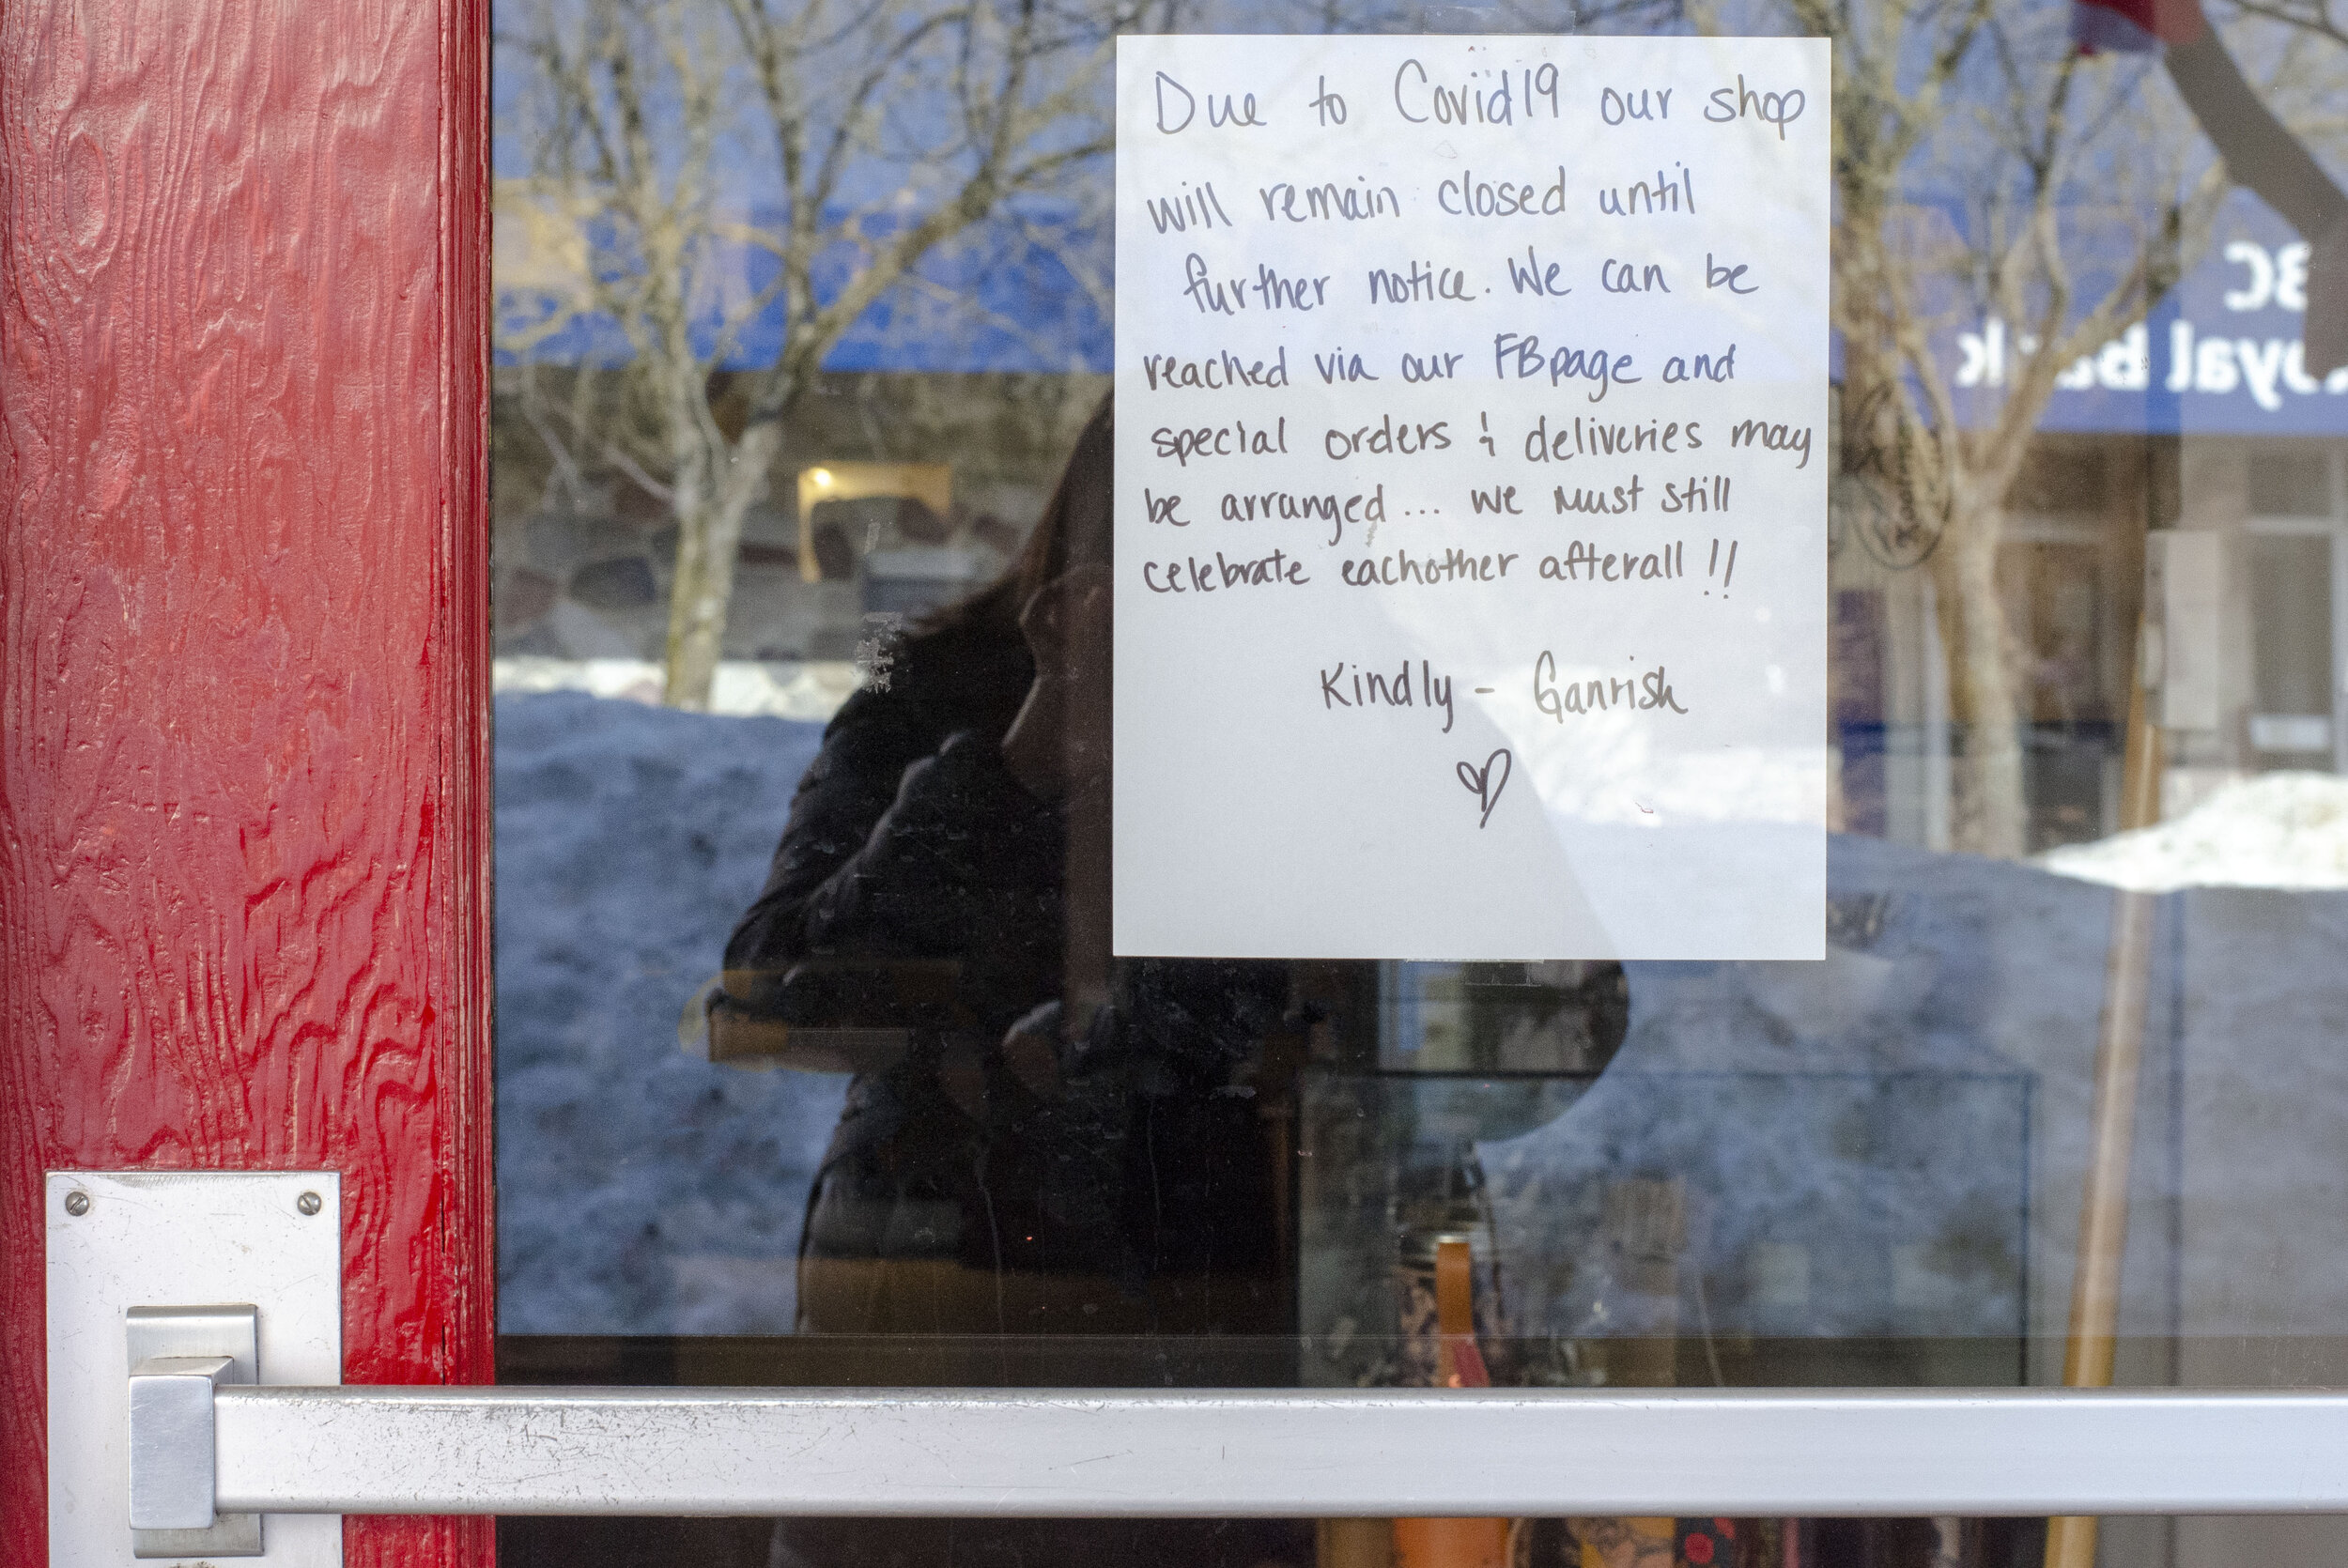 Due to Covid19 our shop
will remain closed until
further notice. We can be
reached via our FBpage and
special orders & deliveries may
be arranged... we must still
celebrate eachother afterall !!
Kindly - Ganrish
BC
oyal bank